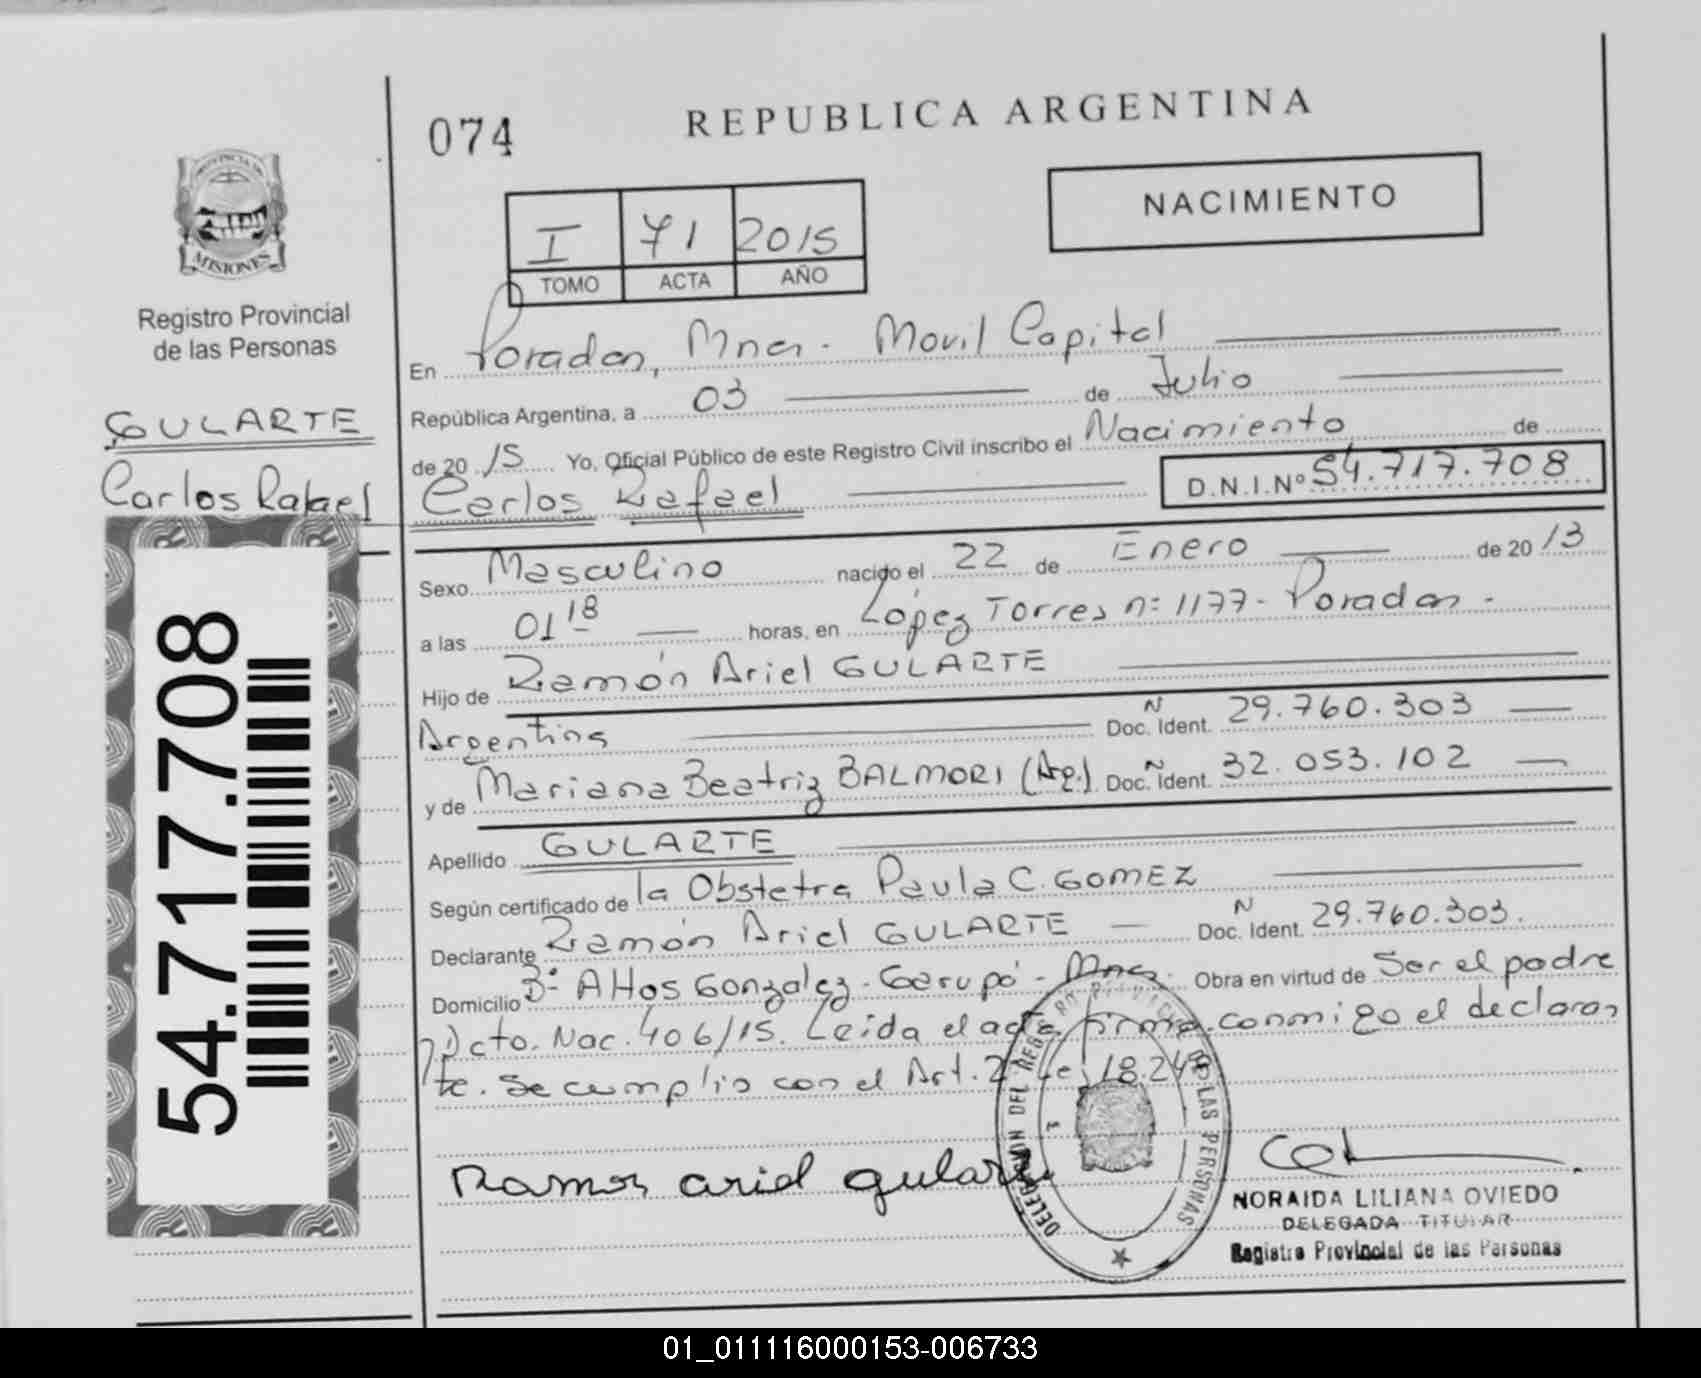 074
REPUBLICA ARGENTINA
NACIMIENTO
I 71 2015
TOMO ACTA AÑO
PROVINCIA DE
MISIONES
Registro Provincial
de las Personas
GULARTE
Carlos Rafael
54.717.708
En Posadas, Mnes. Movil Capital
República Argentina, a 03 de Julio
de 2015 Yo, Oficial Público de este Registro Civil inscribo el Nacimiento de
Carlos Rafael D.N.I.Nº 54.717.708
Sexo Masculino nacido el 22 de Enero de 2013
a las 01 18 horas, en López Torres nº 1177 - Posadas -
Hijo de Ramón Ariel GULARTE
Argentina Doc. Ident. N 29.760.303
y de Mariana Beatriz BALMORI (Arg.) Doc. Ident. N 32.053.102
Apellido GULARTE
Según certificado de la Obstetra Paula C. GOMEZ
Declarante Ramón Ariel GULARTE Doc. Ident. N 29.760.303.
Domicilio Bº Altos Gonzalez - Garupá - Mnes. Obra en virtud de Ser el padre
Dcto. Nac. 406/15. Leida el acta firma conmigo el declaran
te. Se cumplio con el Art. 2 Ley 18.248
Ramon ariel gularte
DELEGACION DEL REGISTRO PROVINCIAL DE LAS PERSONAS
NORAIDA LILIANA OVIEDO
DELEGADA TITULAR
Registro Provincial de las Personas
01_011116000153-006733